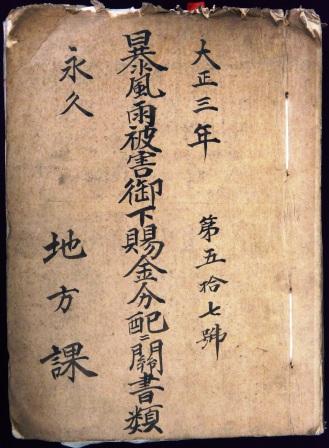 大正三年
第五拾七號
暴風雨被害御下賜金分配ニ関書類
永久
地方課